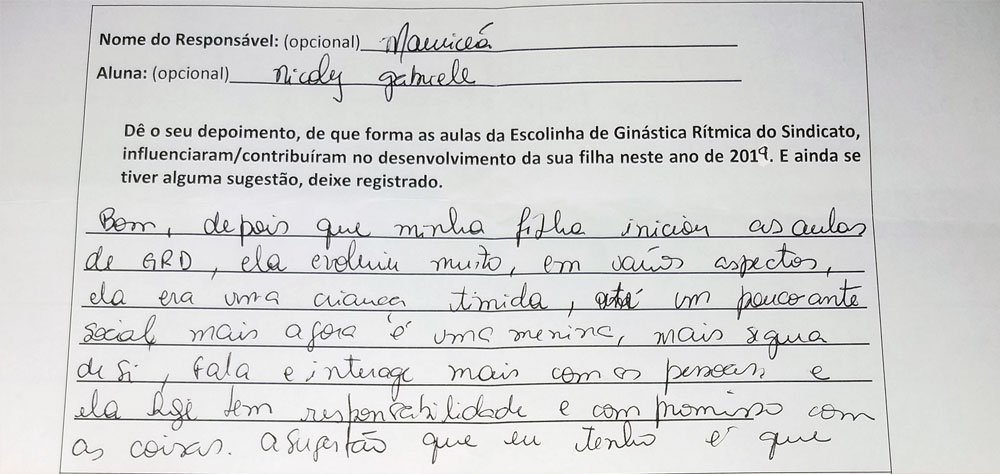 Nome do Responsável: (opcional) Mauriceá
Aluna: (opcional) Nicoly gabriele
Dê o seu depoimento, de que forma as aulas da Escolinha de Ginástica Rítmica do Sindicato,
influenciaram/contribuíram no desenvolvimento da sua filha neste ano de 2019. E ainda se
tiver alguma sugestão, deixe registrado.
Bom, depois que minha filha iniciou as aulas
de GRD, ela evoluiu muito, em vários aspectos,
ela era uma criança timida, até um pouco ante
social, mais agora é uma menina, mais segura
de si, fala e interage mais com as pessoas, e
ela hoje tem responsabilidade e compromisso com
as coisas. a sugestão que eu tenho é que